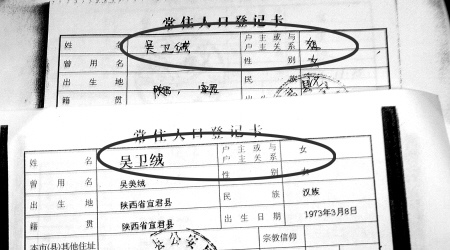 常住人口登记卡
姓 名 吴卫绒 户主或与户主关系
曾用名 性别 女
出生地 民族
籍贯 出生
常住人口登记卡
姓 名 吴卫绒 户主或与户主关系 女
曾用名 吴美绒 性别 女
出生地 陕西省宜君县 民族 汉族
籍贯 陕西省宜君县 出生日期 1973年3月8日
本市(县)其他住址 宗教信仰